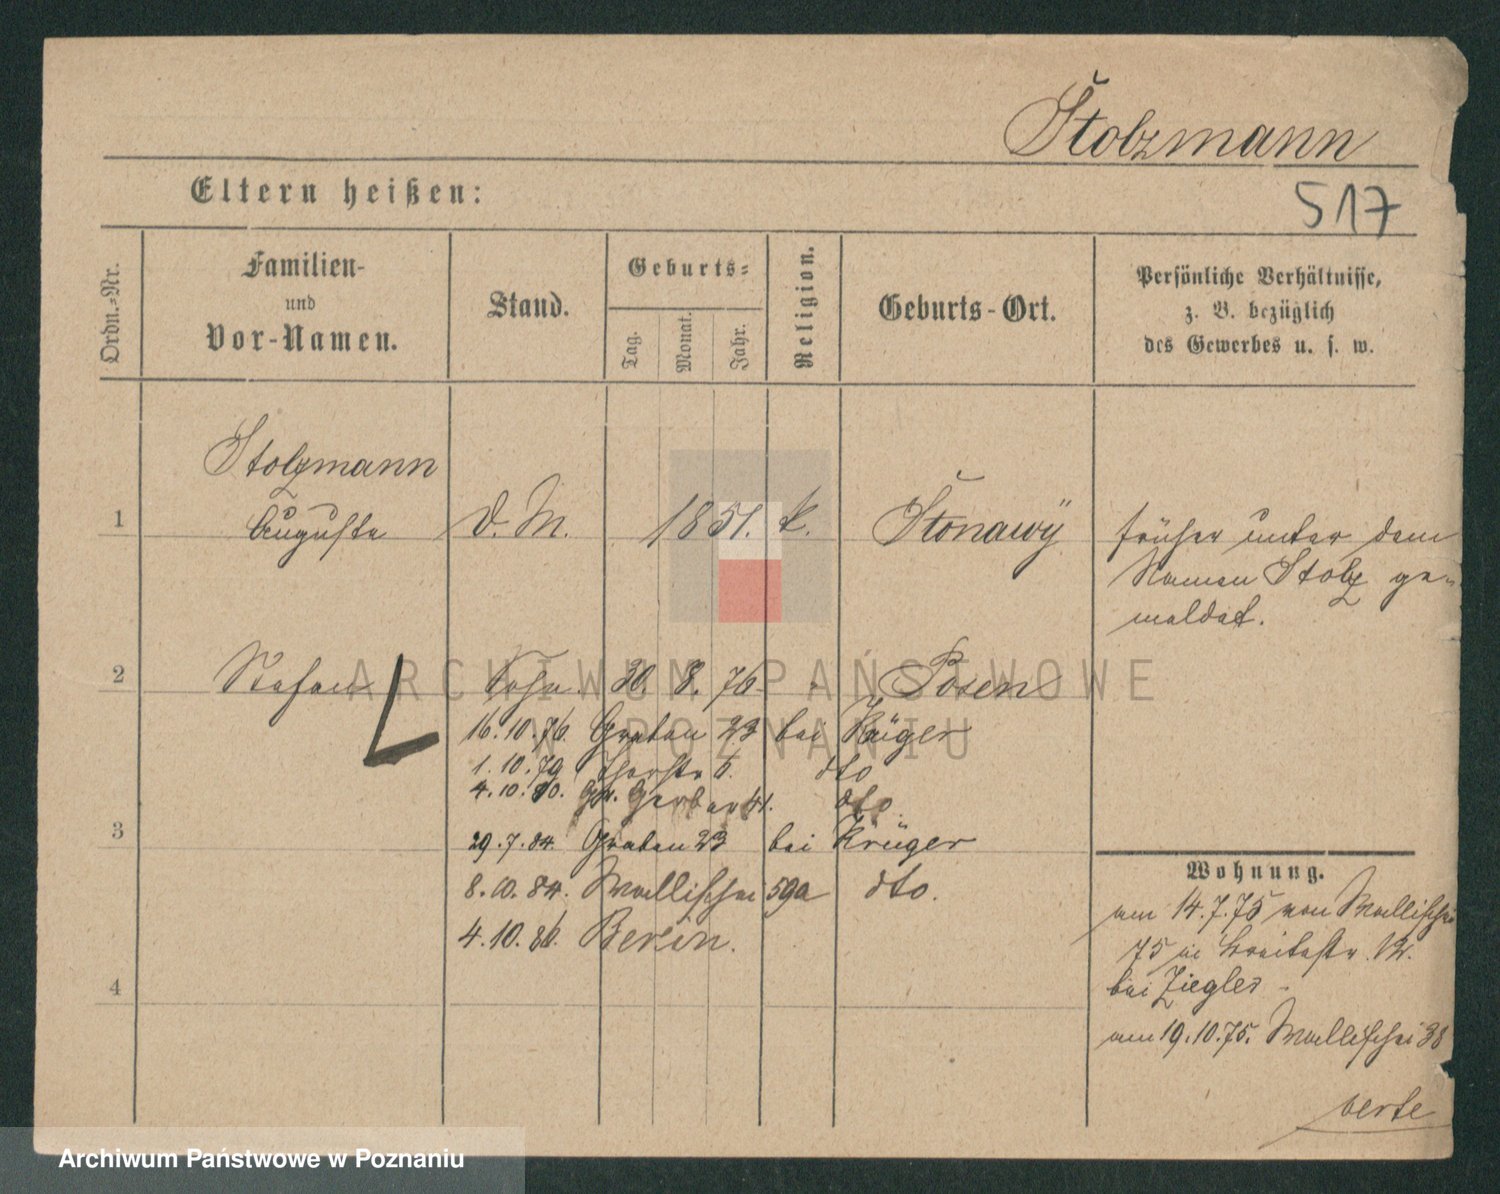 Stolzmann
Eltern heißen:
517
Ordn.=Nr.
Familien-
und
Vor-Namen.
Stand.
Geburts=
Tag.
Monat.
Jahr.
Religion.
Geburts-Ort.
Persönliche Verhältnisse,
z. B. bezüglich
des Gewerbes u. s. w.
Stolzmann
1 Auguste D. M. 1851. k. Stonawÿ
früher unter dem
Namen Stolz ge-
meldet.
2 Stefan Sohn. 30. 8. 76 Posen
16.10.76. Graben 23 bei Krüger
1.10.79 dto
4.10.80. Gr. Gerber 41. dto.
3
29.7.84. Graben 23 bei Krüger
8.10.84. Wallischei 59a dto.
4.10.86. Berlin.
4
Wohnung.
am 14.7.75 von Wallischei
75 in Breitestr. 12.
bei Ziegler -
am 19.10.75. Wallischei 38
verte
ARCHIWUM PAŃSTWOWE
W POZNANIU
Archiwum Państwowe w Poznaniu